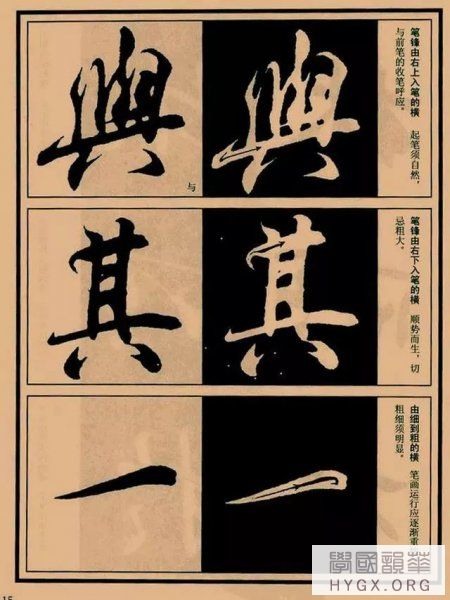 笔锋由右上入笔的横　起笔须自然，
与前笔的收笔呼应。
與
與
与
笔锋由右下入笔的横　顺势而生，切
忌粗大。
其
其
由细到粗的横　笔画运行应逐渐重
粗细须明显。
一
一
學國韻華
HYGX.ORG
15